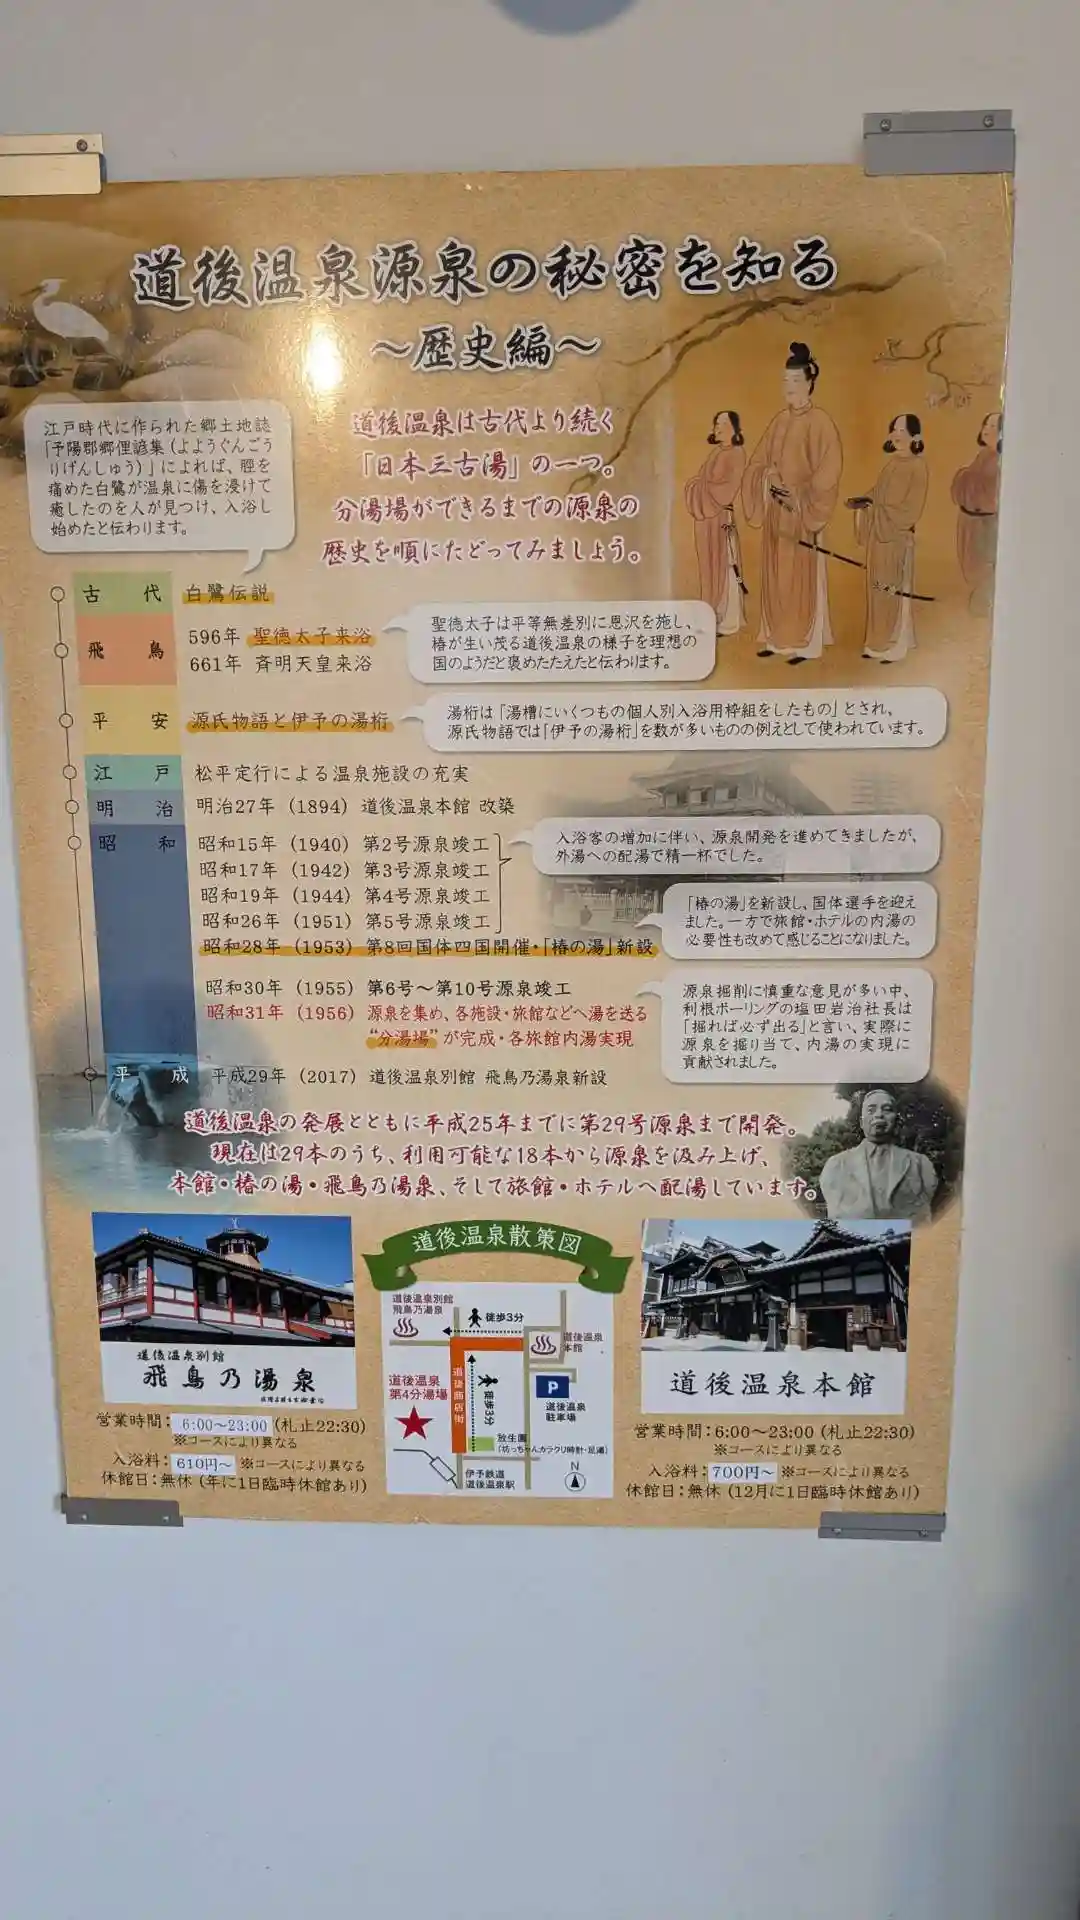 道後温泉源泉の秘密を知る
〜歴史編〜
江戸時代に作られた郷土地誌
「予陽郡郷俚諺集(よようぐんごう
りげんしゅう)」によれば、脛を
痛めた白鷺が温泉に傷を浸けて
癒したのを人が見つけ、入浴し
始めたと伝わります。
道後温泉は古代より続く
「日本三古湯」の一つ。
分湯場ができるまでの源泉の
歴史を順にたどってみましょう。
古代 白鷺伝説
飛鳥 596年 聖徳太子来浴
661年 斉明天皇来浴
聖徳太子は平等無差別に恩沢を施し、
椿が生い茂る道後温泉の様子を理想の
国のようだと褒めたたえたと伝わります。
平安 源氏物語と伊予の湯桁
湯桁は「湯槽にいくつもの個人別入浴用枠組をしたもの」とされ、
源氏物語では「伊予の湯桁」を数が多いものの例えとして使われています。
江戸 松平定行による温泉施設の充実
明治 明治27年(1894) 道後温泉本館 改築
昭和 昭和15年(1940) 第2号源泉竣工
昭和17年(1942) 第3号源泉竣工
昭和19年(1944) 第4号源泉竣工
昭和26年(1951) 第5号源泉竣工
入浴客の増加に伴い、源泉開発を進めてきましたが、
外湯への配湯で精一杯でした。
昭和28年(1953) 第8回国体四国開催・「椿の湯」新設
「椿の湯」を新設し、国体選手を迎え
ました。一方で旅館・ホテルの内湯の
必要性も改めて感じることになりました。
昭和30年(1955) 第6号〜第10号源泉竣工
昭和31年(1956) 源泉を集め、各施設・旅館などへ湯を送る
“分湯場”が完成・各旅館内湯実現
源泉掘削に慎重な意見が多い中、
利根ボーリングの塩田岩治社長は
「掘れば必ず出る」と言い、実際に
源泉を掘り当て、内湯の実現に
貢献されました。
平成 平成29年(2017) 道後温泉別館 飛鳥乃湯泉新設
道後温泉の発展とともに平成25年までに第29号源泉まで開発。
現在は29本のうち、利用可能な18本から源泉を汲み上げ、
本館・椿の湯・飛鳥乃湯泉、そして旅館・ホテルへ配湯しています。
道後温泉別館
飛鳥乃湯泉
営業時間:6:00〜23:00(札止22:30)
※コースにより異なる
入浴料:610円〜 ※コースにより異なる
休館日:無休(年に1日臨時休館あり)
道後温泉散策図
道後温泉別館
飛鳥乃湯泉
徒歩3分
道後温泉
本館
道後温泉
第4分湯場
道後商店街
徒歩3分
P
道後温泉
駐車場
放生園
(坊っちゃんカラクリ時計・足湯)
伊予鉄道
道後温泉駅
N
道後温泉本館
営業時間:6:00〜23:00(札止22:30)
※コースにより異なる
入浴料:700円〜 ※コースにより異なる
休館日:無休(12月に1日臨時休館あり)